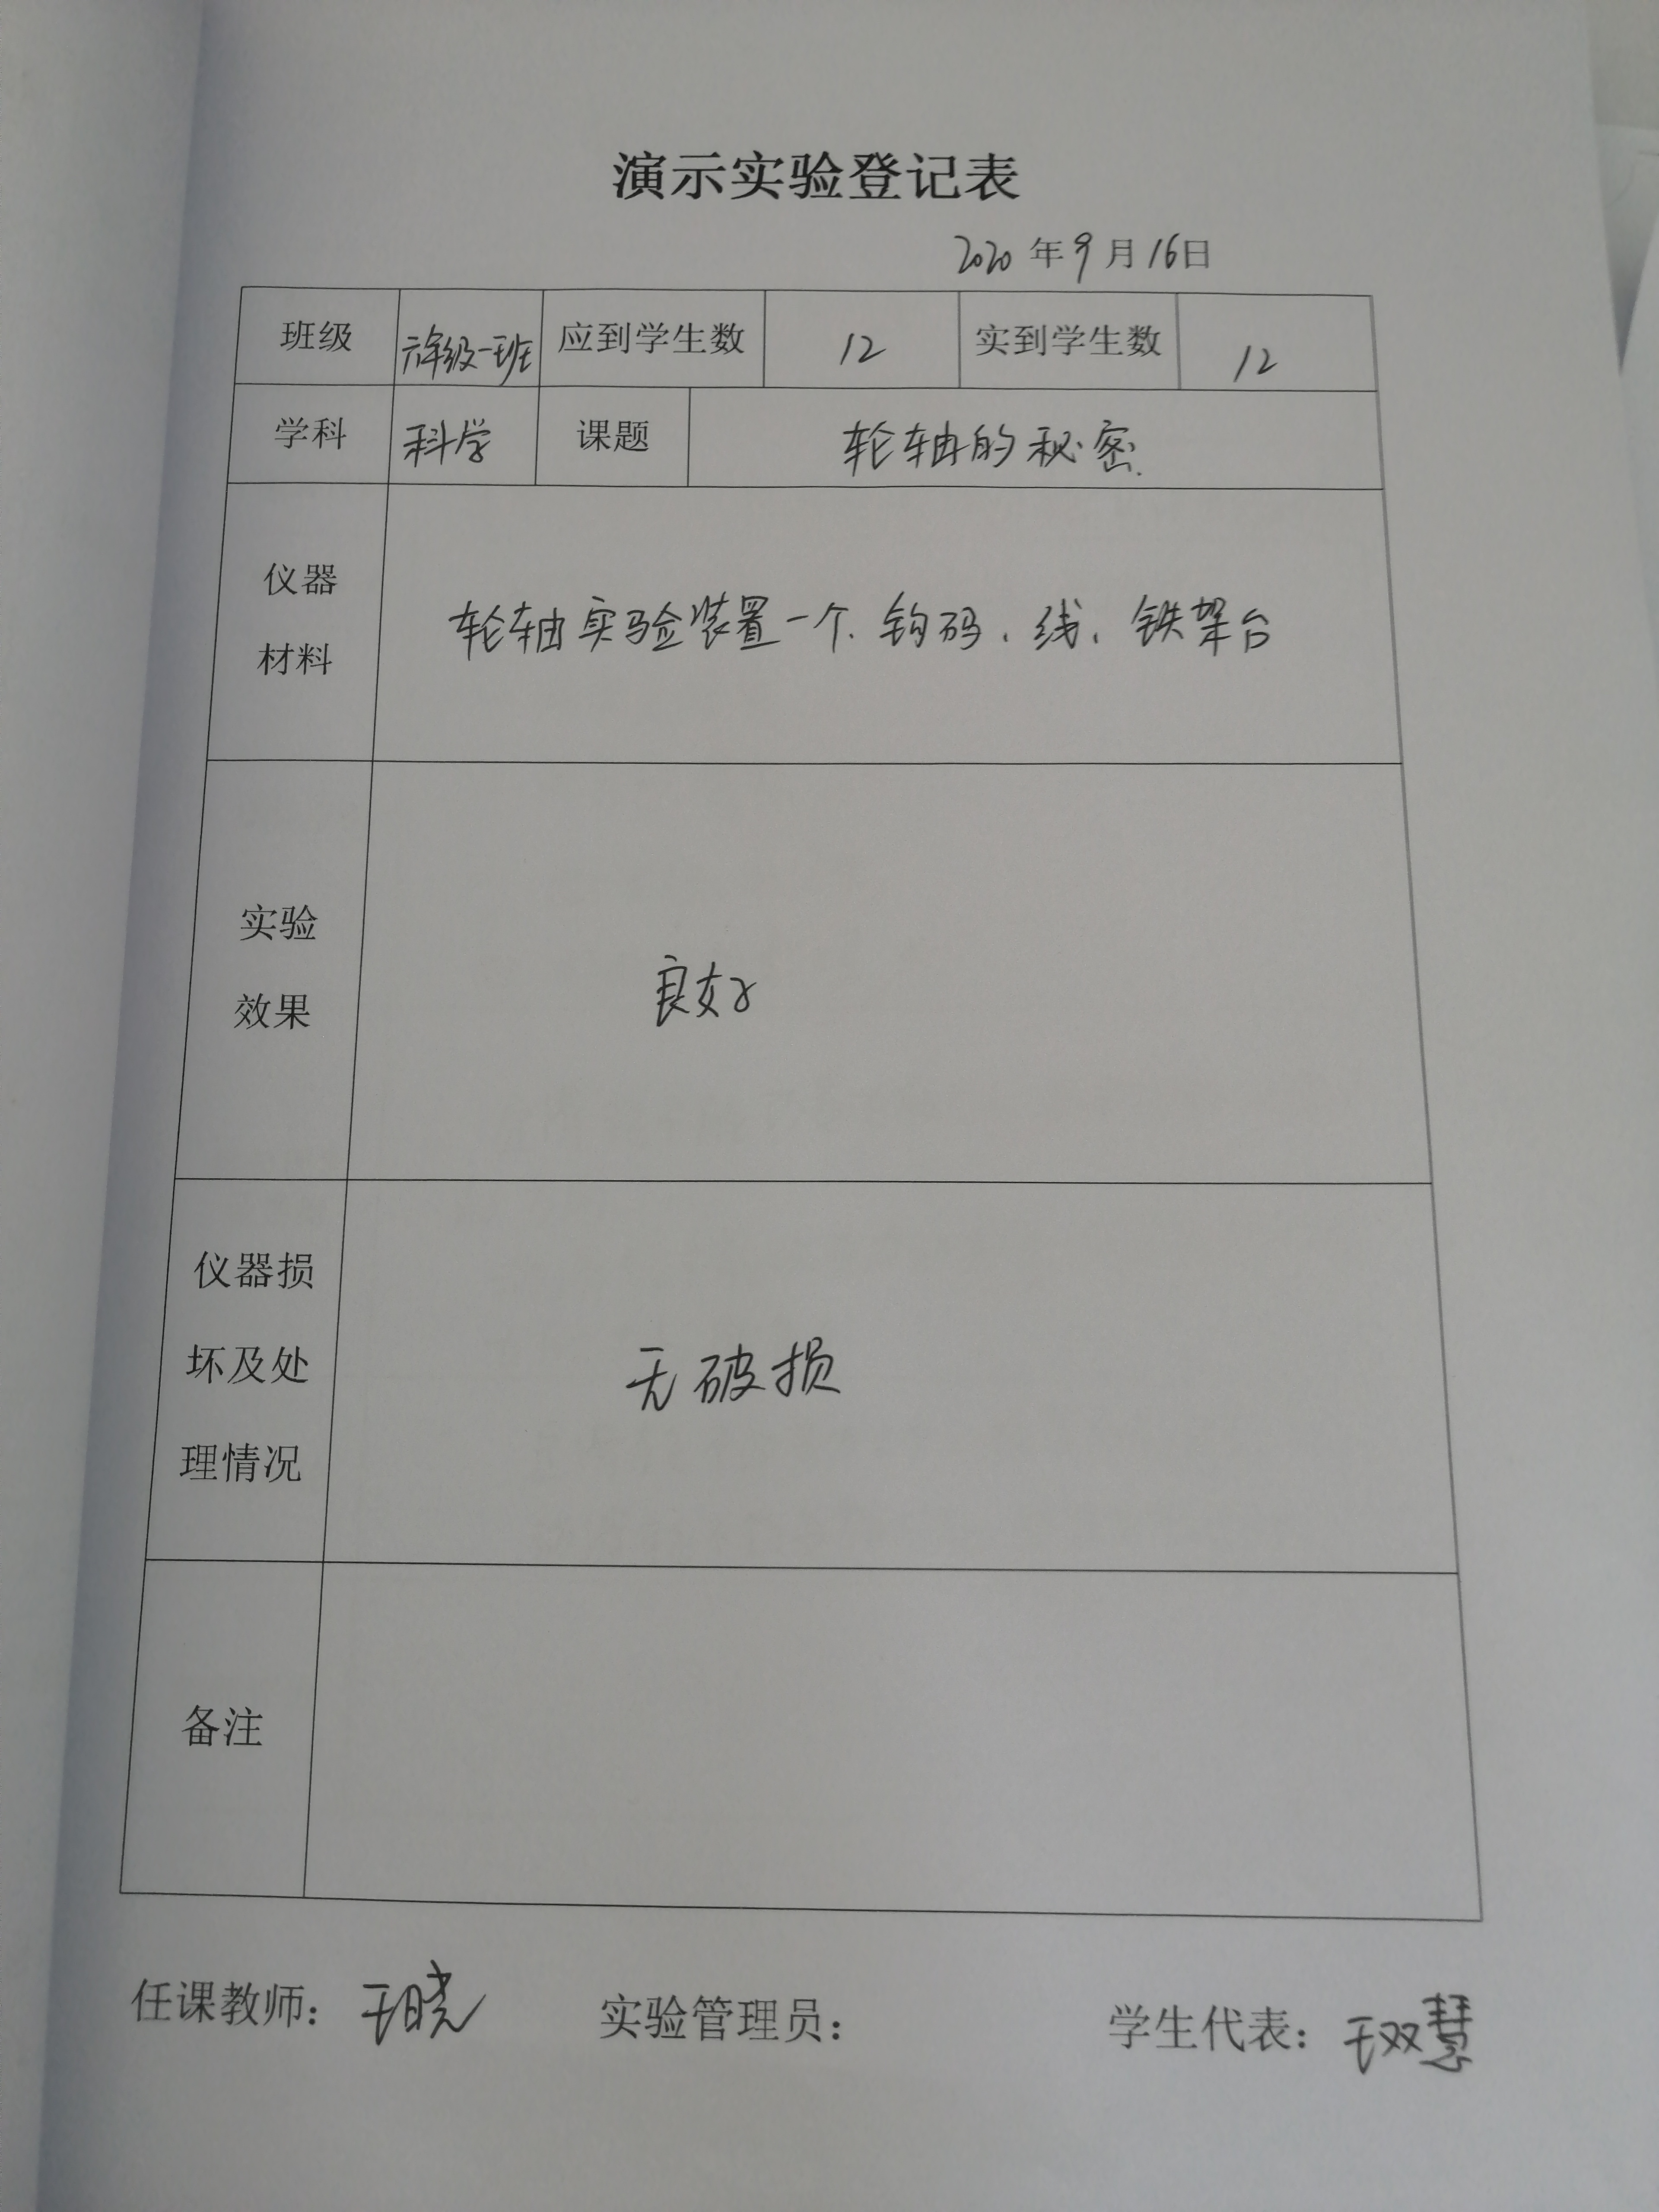 演示实验登记表
2020年9月16日
班级 六年级一班 应到学生数 12 实到学生数 12
学科 科学 课题 轮轴的秘密
仪器
材料
轮轴实验装置一个、钩码、线、铁架台
实验
效果
良好
仪器损
坏及处
理情况
无破损
备注
任课教师：王晓 实验管理员： 学生代表：王双慧